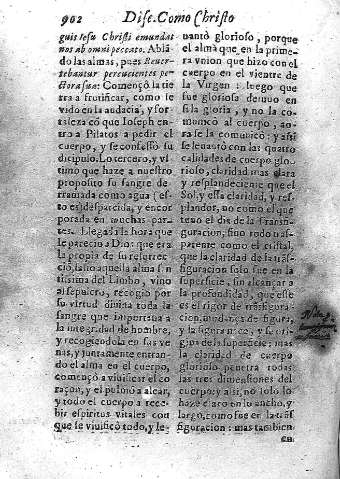 902
Disc. Como Christo
guis Iesu Christi emundat
nos ab omni peccato. Ablã
do las almas, pues Reuer-
tebantur percucientes pe-
ctora sua: Començò la tie
rra a frutificar, como se
vido en la audacia, y for-
taleza cõ que Ioseph en-
tro a Pilatos a pedir el
cuerpo, y se confessò su
dicipulo. Lo tercero, y vl
timo que haze a nuestro
proposito su sangre de-
rramada como agua (es
to es) desparcida, y encor
porada en muchas par-
tes. Llegada la hora que
le parecio a Dios que era
la propia de su resurrec
ciõ, la
del Limbo, vino
al sepulcro, recogio por
su virtud diuina toda la
sangre que importaua a
la integridad de hombre,
y recogiendola en sus ve
nas, y juntamente entran
do el alma en el cuerpo,
començò a viuificar el co
raçon, y el pulmõ a alçar,
y todo el cuerpo a rece-
bir espiritus vitales con
que se viuificò todo, y le-
uantò glorioso, porque
el alma que en la prime-
ra vnion que hizo con el
cuerpo en el vientre de
la Virgen: luego que
fue gloriosa detuuo en
si la gloria, y no la co-
municò al cuerpo, ao-
ra se la comunicò: y assi
se leuãtò con las quatro
calidades de cuerpo glo-
rioso, claridad mas clara
y resplandeciente que el
Sol, y essa claridad, y res-
plandor, no como el que
tuuo el dia de la Transfi-
guracion, sino todo trãs-
parente como el cristal,
que la claridad de la trãs-
figuracion solo fue en la
superficie, sin alcançar a
la profundidad, que esse
es el rigor de trãsfigura-
cion, mudança de figura,
y la figura
de la superficie: mas
la claridad de cuerpo
glorioso penetra todas
las tres dimensiones del
cuerpo: y assi, no solo lo
haze claro en lo ancho, y
largo, como fue en la trãs
figuracion: mas tambien
en